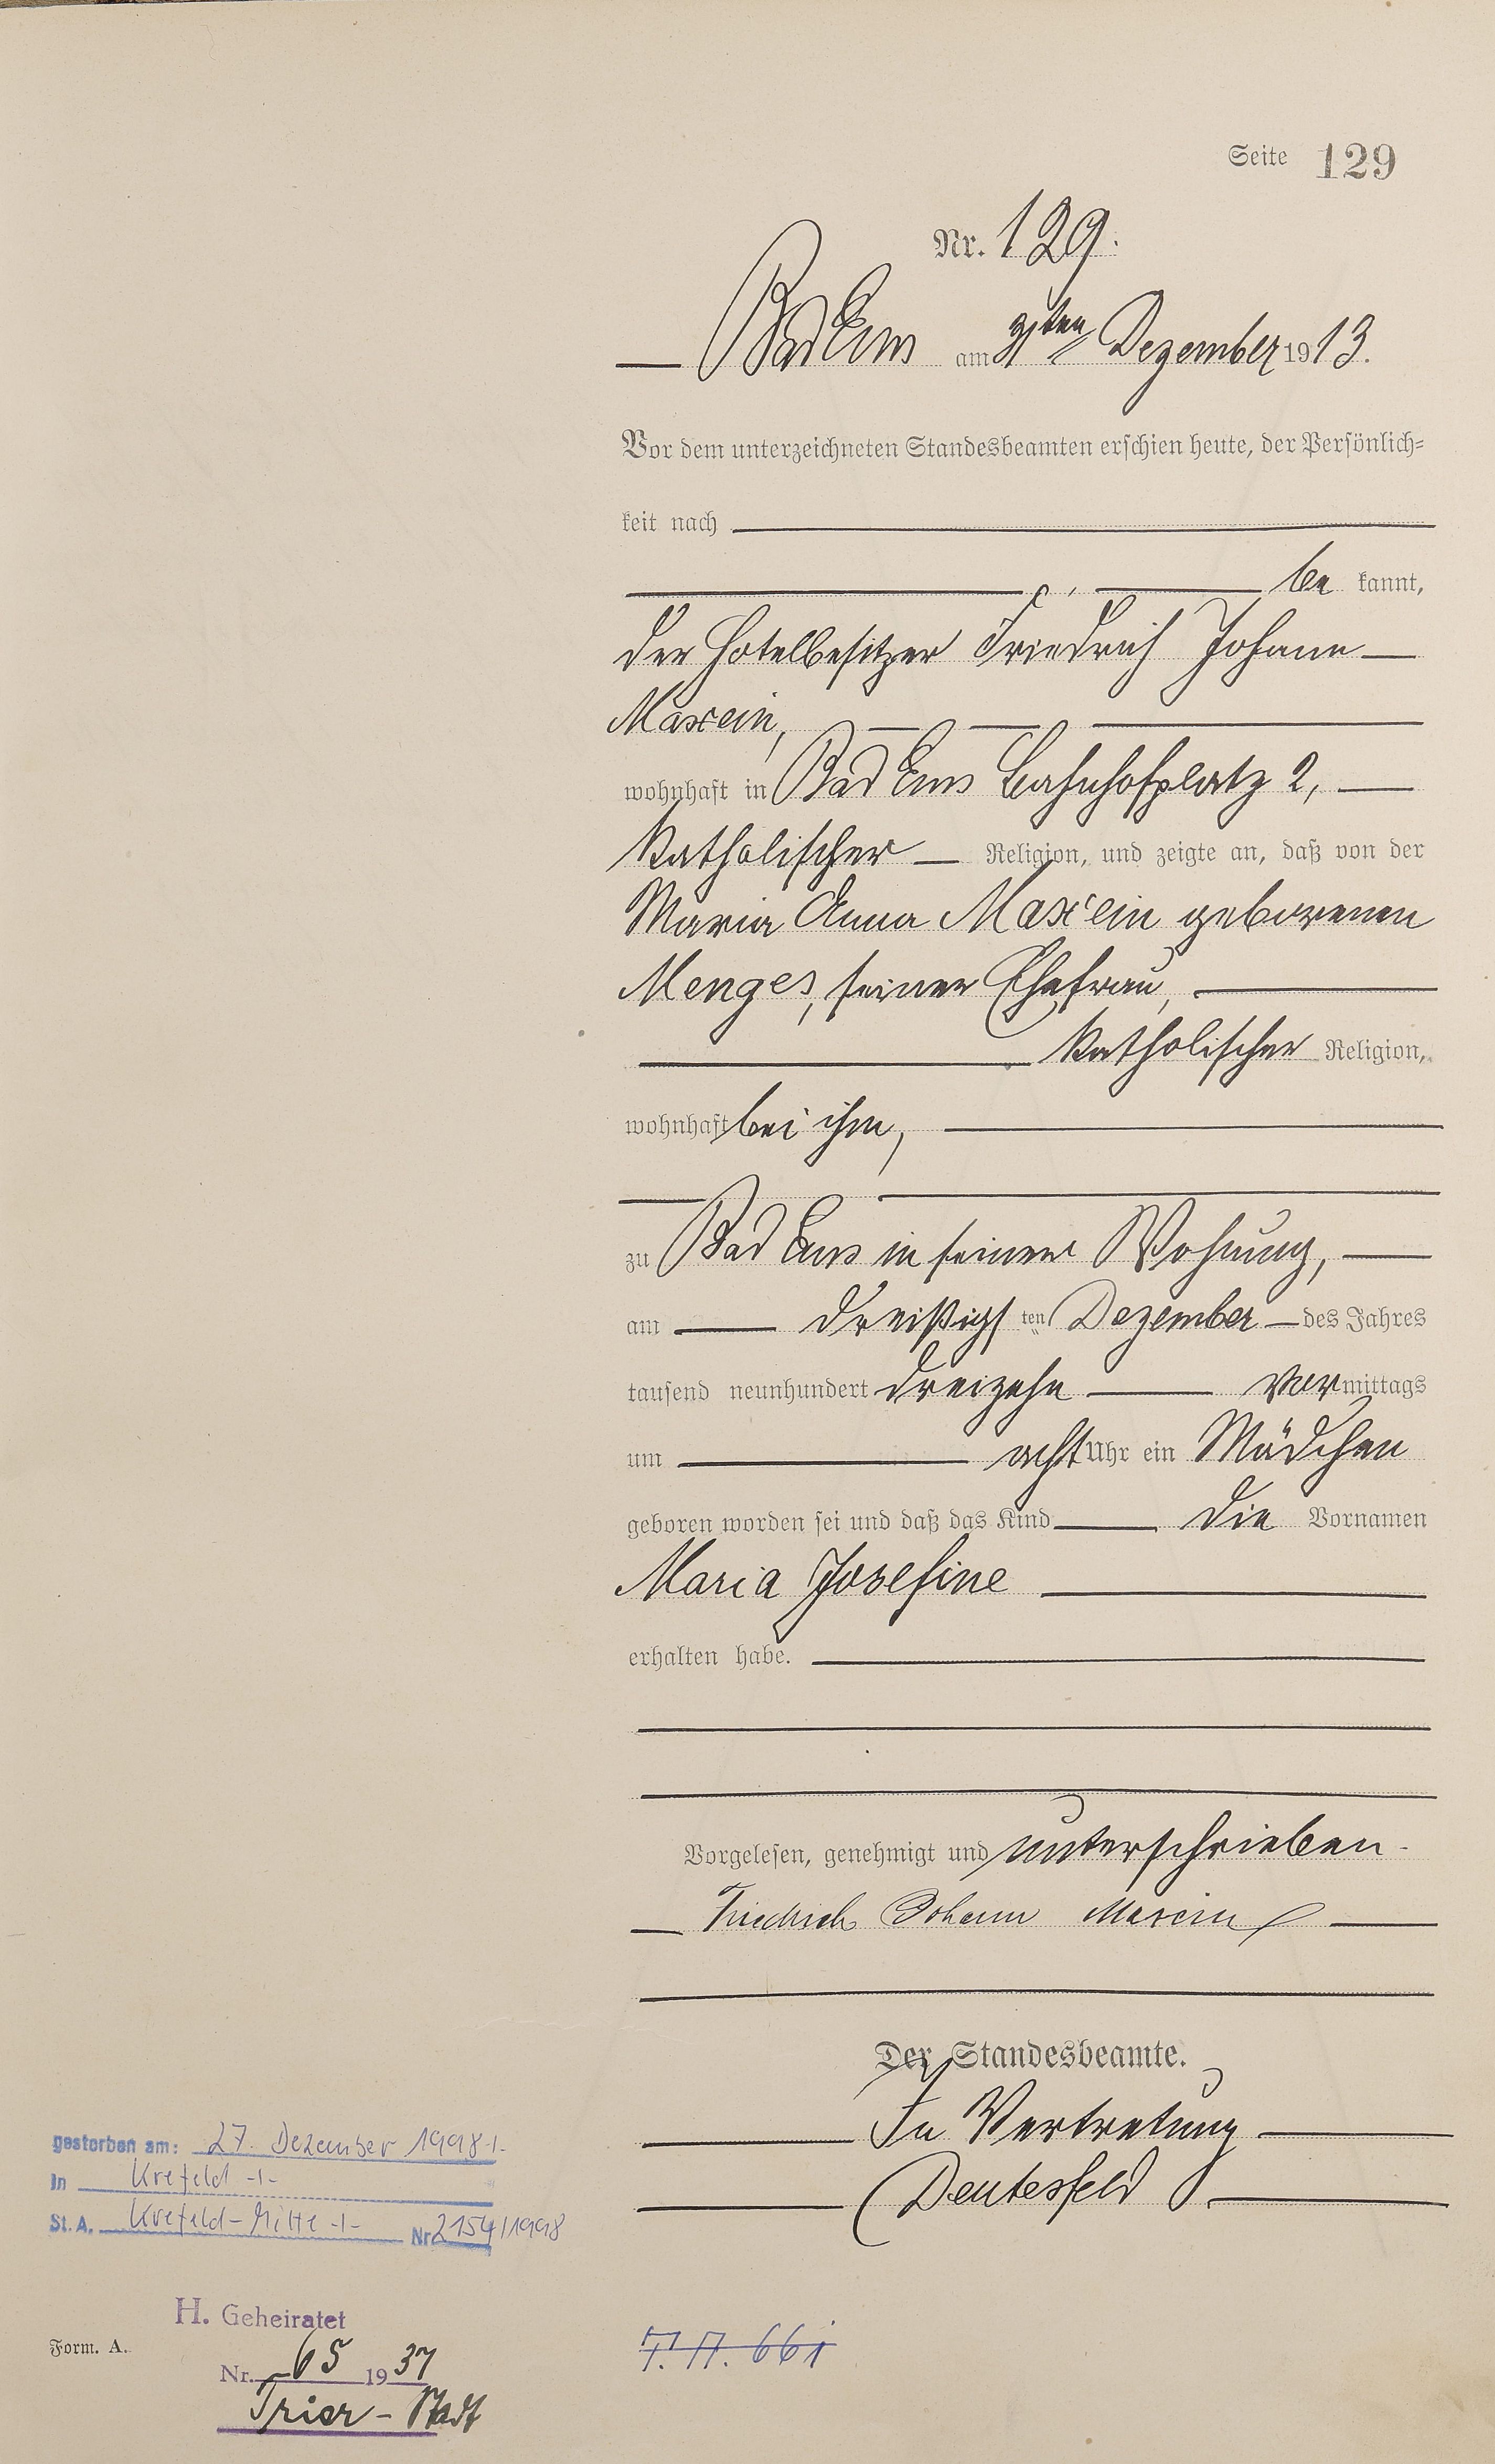 Seite 129
Nr. 129.
Bad Ems am 31ten Dezember 1913.
Vor dem unterzeichneten Standesbeamten erschien heute, der Persönlich=
keit nach
be kannt,
der Hotelbesitzer Friedrich Johann
Maxein,
wohnhaft in Bad Ems Bahnhofplatz 2,
katholischer Religion, und zeigte an, daß von der
Maria Anna Maxein geborenen
Menges, seiner Ehefrau,
katholischer Religion,
wohnhaft bei ihm,
zu Bad Ems in seiner Wohnung,
am dreißigsten Dezember des Jahres
tausend neunhundert dreizehn Vormittags
um acht Uhr ein Mädchen
geboren worden sei und daß das Kind die Vornamen
Maria Josefine
erhalten habe.
Vorgelesen, genehmigt und unterschrieben
Friedrich Johann Maxein
Der Standesbeamte.
In Vertretung
Deutesfeld
gestorben am: 27. Dezember 1998-/-
in Krefeld -/-
St. A. Krefeld-Mitte -/- Nr 2154/1998
H. Geheiratet
Form. A.
Nr. 65 1937
Trier-Stadt